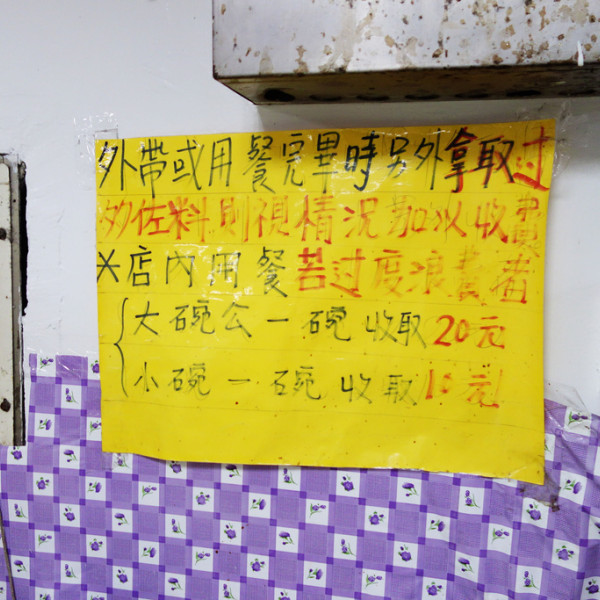 外帶或用餐完畢時另外拿取过
多佐料則視情況加以收費
※店內用餐若过度浪費者
大碗公一碗收取20元
小碗一碗收取10元